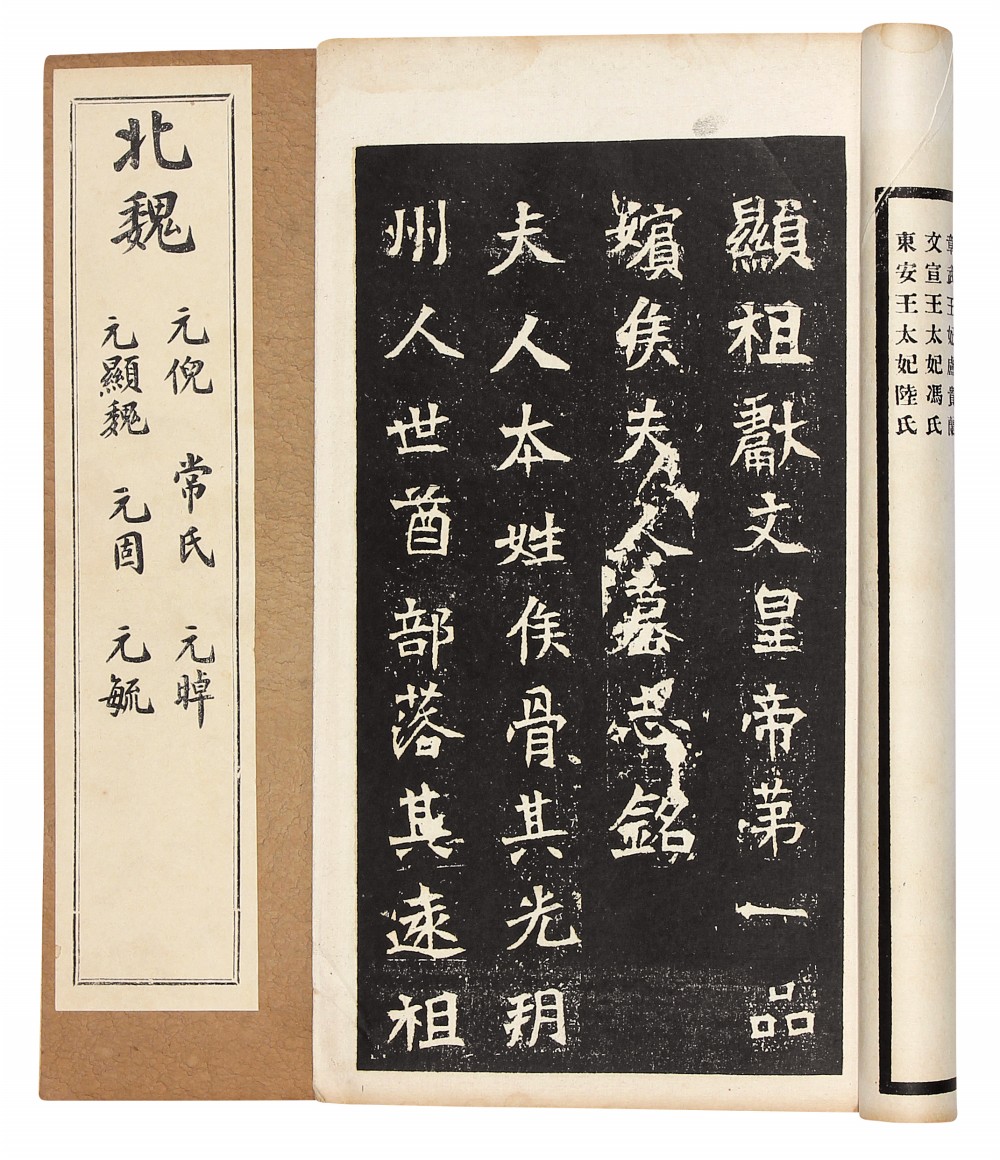 北魏
元倪 常氏 元晫
元顯魏 元固 元毓
顯祖獻文皇帝第一品
嬪侯夫人墓志銘
夫人本姓侯骨其先朔
州人世酋部落其遠祖
章武王妃盧貴蘭
文宣王太妃馮氏
東安王太妃陸氏